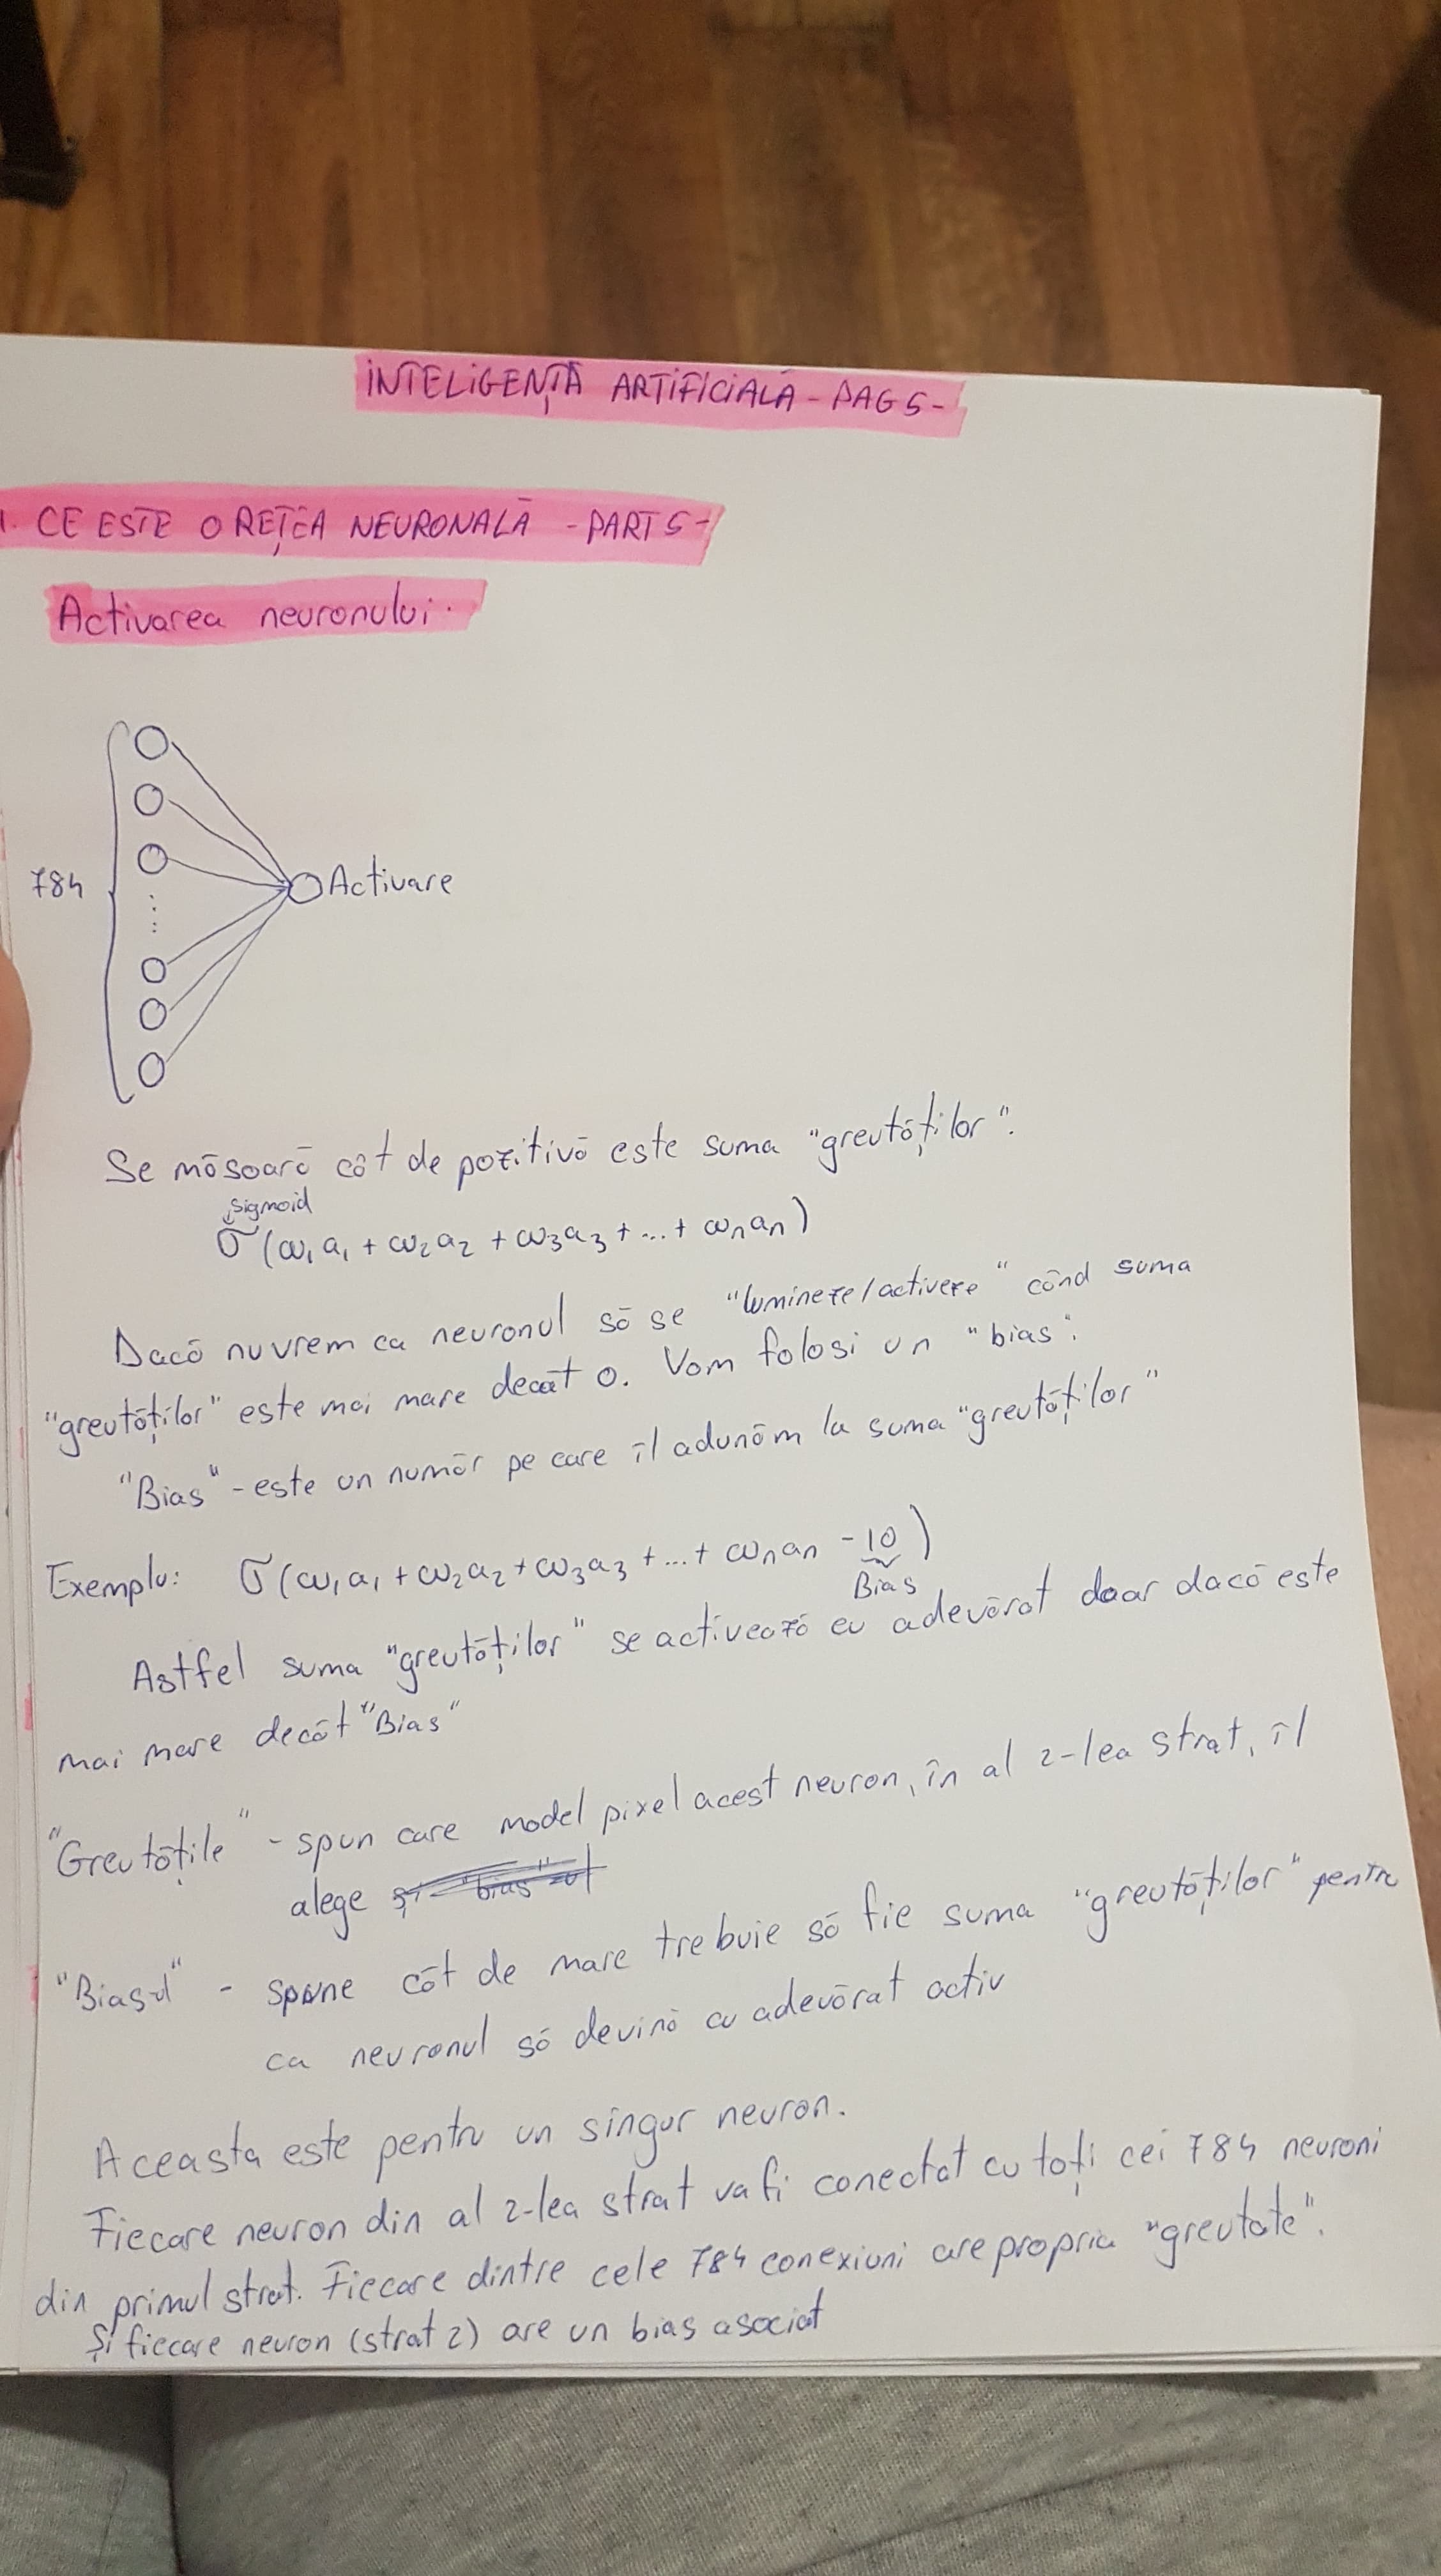 INTELIGENȚĂ ARTIFICIALĂ - PAG 5 -
1. CE ESTE O REȚEA NEURONALĂ - PART 5 -
Activarea neuronului.
784
Activare
Se măsoară cât de pozitivă este suma "greutăților".
sigmoid
σ(ω₁a₁ + ω₂a₂ + ω₃a₃ + ... + ωₙaₙ)
Dacă nu vrem ca neuronul să se "lumineze/activeze" când suma
"greutăților" este mai mare decât 0. Vom folosi un "bias".
"Bias" - este un număr pe care îl adunăm la suma "greutăților"
Exemplu: σ(ω₁a₁ + ω₂a₂ + ω₃a₃ + ... + ωₙaₙ - 10)
Bias
Astfel suma "greutăților" se activează cu adevărat doar dacă este
mai mare decât "Bias"
"Greutățile" - spun care model pixel acest neuron, în al 2-lea strat, îl
alege
"Bias-ul" - spune cât de mare trebuie să fie suma "greutăților" pentru
ca neuronul să devină cu adevărat activ
Aceasta este pentru un singur neuron.
Fiecare neuron din al 2-lea strat va fi conectat cu toți cei 784 neuroni
din primul strat. Fiecare dintre cele 784 conexiuni are propria "greutate".
Și fiecare neuron (strat 2) are un bias asociat